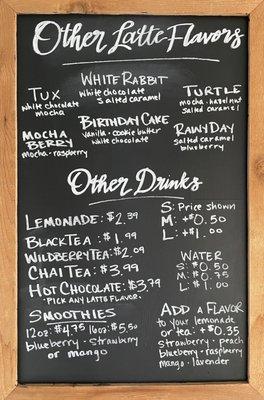 Other Latte Flavors
White Rabbit
white chocolate
salted caramel
Tux
white chocolate
mocha
Turtle
mocha · hazelnut
salted caramel
Mocha
Berry
mocha · raspberry
Birthday Cake
vanilla · cookie butter
white chocolate
Rainy Day
salted caramel
blueberry
Other Drinks
Lemonade: $2.39
Black Tea: $1.99
Wildberry Tea: $2.09
Chai Tea: $3.99
Hot Chocolate: $3.79
*Pick any latte flavor.
Smoothies
12oz: $4.75 16oz: $5.50
blueberry - strawberry
or mango
S: Price shown
M: +$0.50
L: +$1.00
Water
S: $0.50
M: $0.75
L: $1.00
Add a Flavor
to your lemonade
or tea: +$0.35
strawberry · peach
blueberry · raspberry
mango · lavender